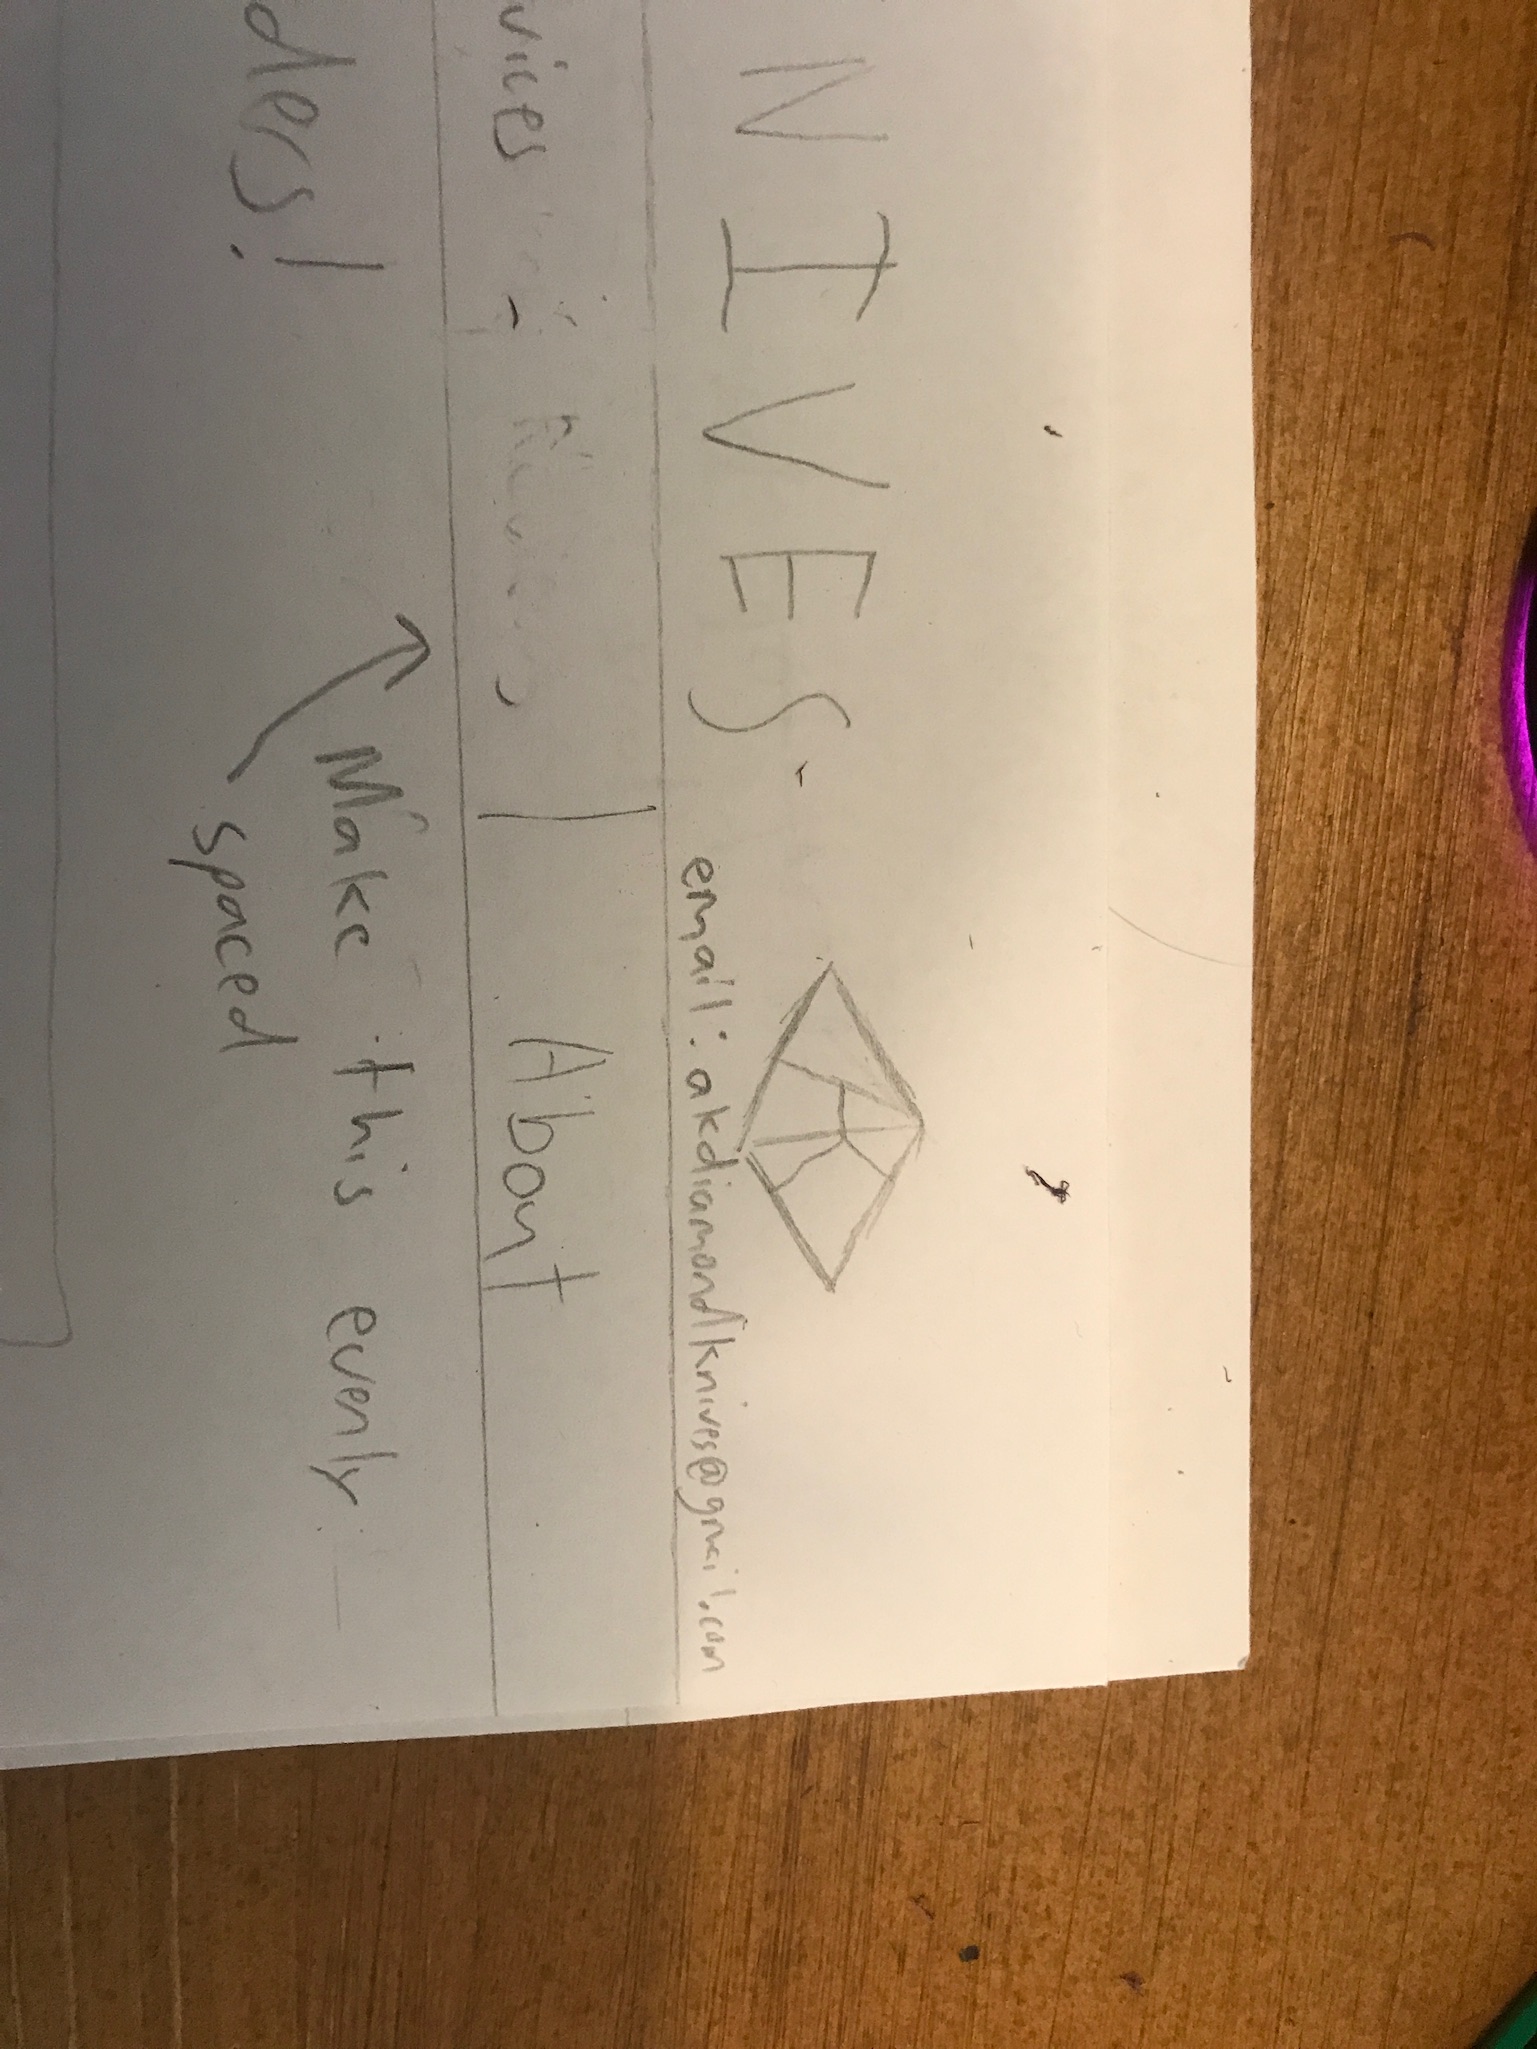 NIVES
AK
email: akdiamondknives@gmail.com
vices | About
ders!
Make this evenly
spaced